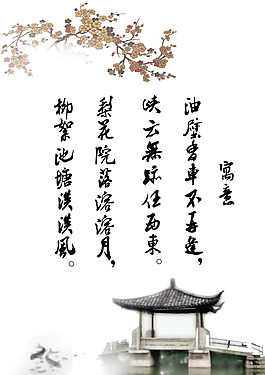 寓意
油壁香車不再逢，
峡云無跡任西東。
梨花院落溶溶月，
柳絮池塘淡淡風。